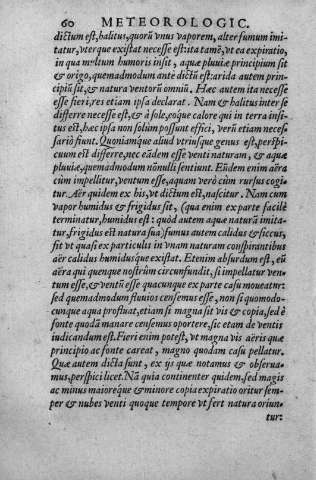 60 METEOROLOGIC.
dictum est, halitus, quorũ vnus vaporem, alter fumum imi-
tatur, vterque existat necesse est: ita tamẽ, vt ea expiratio,
in qua multum humoris insit, aquæ pluuiæ principium sit
& origo, quemadmodum ante dictũ est: arida autem prin-
cipiũ sit, & natura ventorũ omniũ. Hæc autem ita necesse
esse fieri, res etiam ipsa declarat. Nam & halitus inter se
differre necesse est, & à sole, eoque calore qui in terra insi-
tus est, hæc ipsa non solùm possunt effici, verũ etiam neces-
sariò fiunt. Quoniamque aliud vtriusque genus est, perspi-
cuum est differre, nec eãdem esse venti naturam, & aquæ
pluuiæ, quemadmodum nõnulli sentiunt. Eũdem enim aëra
cùm impellitur, ventum esse, aquam verò cùm rursus cogi-
tur. Aër quidem ex his, vt dictum est, nascitur. Nam cum
vapor humidus & frigidus sit, (qua enim ex parte facilè
terminatur, humidus est: quòd autem aquæ naturã imita-
tur, frigidus est natura sua) fumus autem calidus & siccus,
fit vt quasi ex particulis in vnam naturam conspirantibus
aër calidus humidusque existat. Etenim absurdum est, eũ
aëra qui quenque nostrûm circunfundit, si impellatur ven-
tum esse, & ventũ esse quacunque ex parte casu moueatur:
sed quemadmodum fluuios censemus esse, non si quomodo-
cunque aqua profluat, etiam si magna sit vis & copia, sed è
fonte quodã manare censemus oportere, sic etam de ventis
iudicandum est. Fieri enim potest, vt magna vis aëris quæ
principio ac fonte careat, magno quodam casu pellatur.
Quæ autem dicta sunt, ex ijs quæ notamus & obserua-
mus, perspici licet. Nã quia continenter quidem, sed magis
ac minus maioreque & minore copia expiratio oritur sem-
per & nubes venti quoque tempore vt fert natura oriun-
tur: